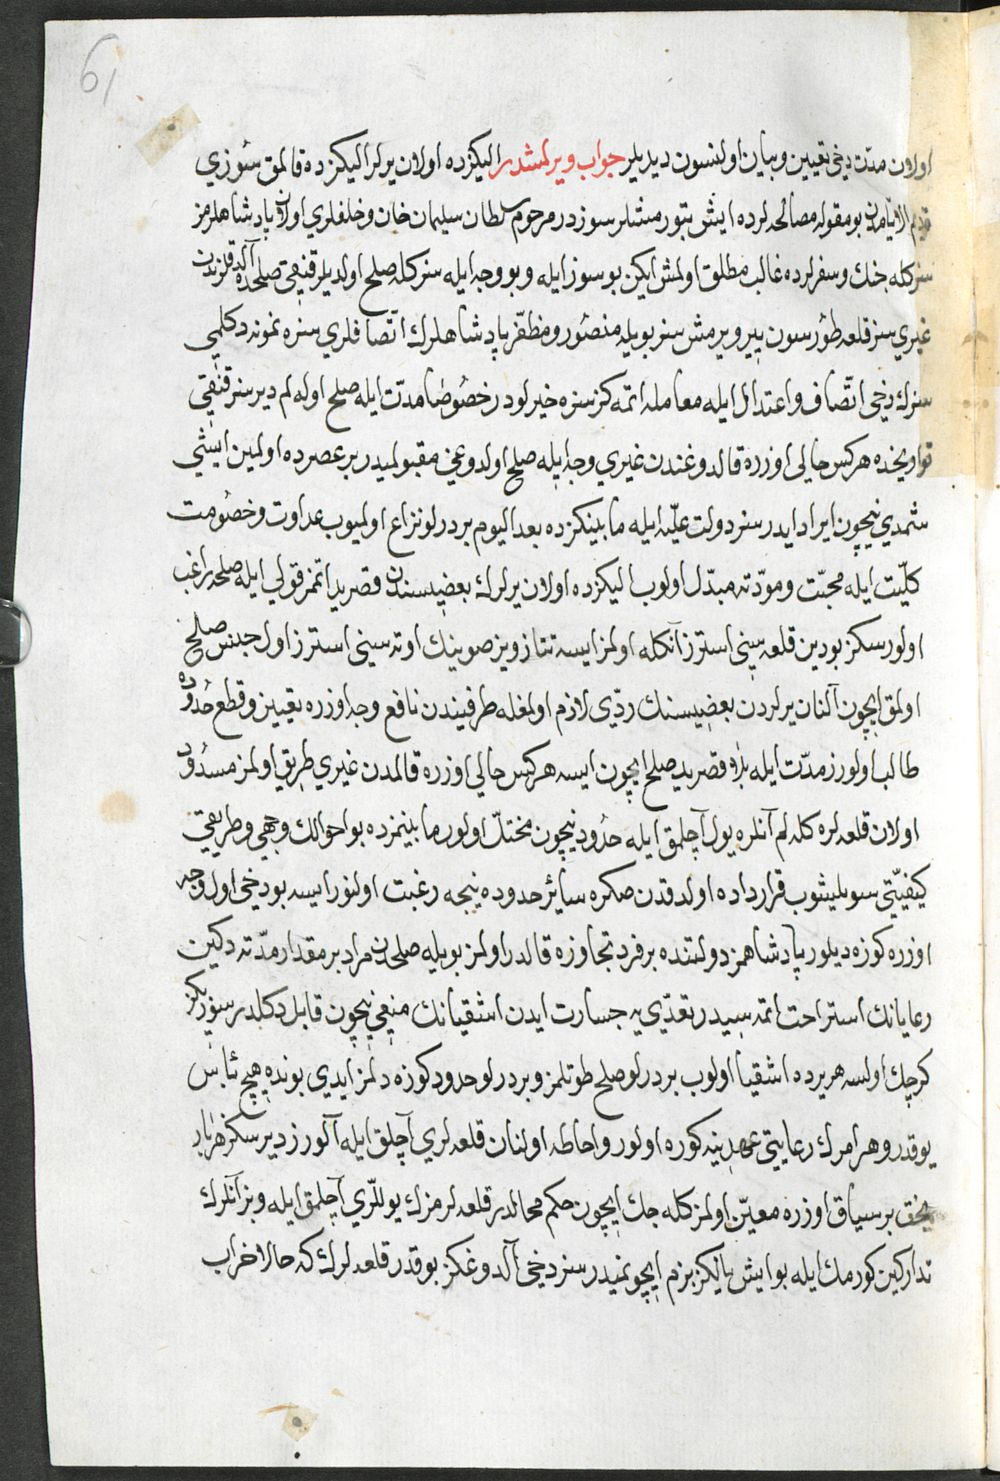 61
اولان مدّت دخي تعيين و بيان اولنسون ديديلر جواب ويرلمشدر اليكزده اولان يرلر اليكزده قالمق سوزي
قديم الايامدن بو مقوله مصالحه لرده ايش بتورمشلر سوزدر مرحوم سلطان سليمان خان و خلفلري اولان پادشاهلرمز
سزكله جنك و سفرلرده غالب مطلق اولمش ايكن بو سوز ايله و بو وجه ايله سزكله صلح اولديلر قنغي صلحده آلدقلرندن
غيري سز قلعه طورسون يير ويرمش سز بويله منصور و مظفّر پادشاهلرك اتّصافلري سزه نمونه دكلمي
سزك دخي اتّصاف و اعتدال ايله معامله اتمه كز سزه خيرلودر خصوصا مدّت ايله صلح اوله لم ديرسز قنغي
تواريخده هركس حالي اوزره قالدوغندن غيري وجه ايله صلح اولدوغي مقبولميدر بر عصرده اولمين ايشي
شمدي نيچون ايراد ايدرسز دولت عليّه ايله مابينكزده بعد اليوم بر درلو نزاع اولميوب عداوت و خصومت
كلّيت ايله محبّت و مودّته مبدّل اولوب اليكزده اولان يرلرك بعضيسندن قصر يد اتمز قولي ايله صلحه راغب
اولورسكز بودين قلعه سيني استرز آنكله اولمز ايسه تتا ز ويز صوينك اوته سيني استرز اول جنس صلح
اولمق ايچون آلنان يرلردن بعضيسنك ردّي لازم اولمغله طرفيندن نافع وجه اوزره تعيين و قطع حدوده
طالب اولورز مدّت ايله بلا قصر يد صلح ايچون ايسه هركس حالي اوزره قالمدن غيري طريق اولمز مسدود
اولان قلعه لره كله لم آنلره يول آچلمق ايله حدود نيچون مختلّ اولور مابينمزده بو احوالك وجهي و طريقي
كيفيّتي سويلشوب قرارداده اولدقدن صكره سائر حدوده نيجه رغبت اولنور ايسه بو دخي اول وجه
اوزره كوزه ديلور پادشاهمز دولتنده بر فرد تجاوزه قادر اولمز بويله صلحدن مراد بر مقدار مدّته دكين
رعايانك استراحت اتمه سيدر تعدّي يه جسارت ايدن اشقيانك منعي نيچون قابل دكلدر سوزيكز
كرچك اولسه هر يرده اشقيا اولوب بر درلو صلح طوتلمز و بر درلو حدود كوزه دلمز ايدي بونده هيچ بأس
يوقدر و هر امرك رعايتي عهدينه كوره اولور و احاطه اولنان قلعه لري آچلق ايله آلورز ديرسكز هر بار
جنك بر سياق اوزره معيّن اولمز كله جك ايچون حكم محالدر قلعه لرمزك يوللري آچلمق ايله و بز آنلرك
تداركين كورمك ايله بو ايش يالكز بزم ايچونميدر سز دخي آلدوغكز بو قدر قلعه لرك كه حالا خراب